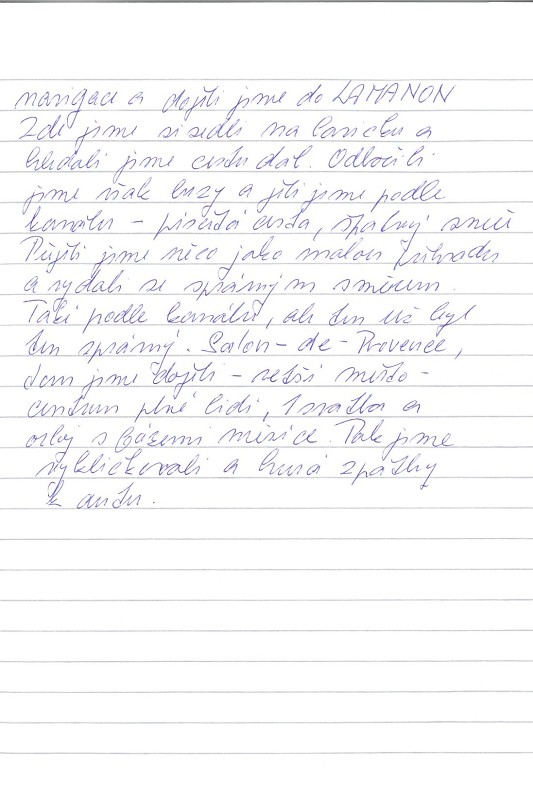 navigace a došli jsme do LAMANON
Zde jsme si sedli na lavičku a
hledali jsme cestu dál. Odbočili
jsme však brzy a šli jsme podle
kanálu - písčitá cesta, špatný směr
Přešli jsme něco jako malou přehradu
a vydali se správným směrem.
Také podle kanálu, ale ten už byl
ten správný. Salon-de-Provence,
tam jsme došli - větší město -
centrum plné lidí, 1 svatba a
orloj s měsíce. Tak jsme
vykličkovali a hurá zpátky
k autu.